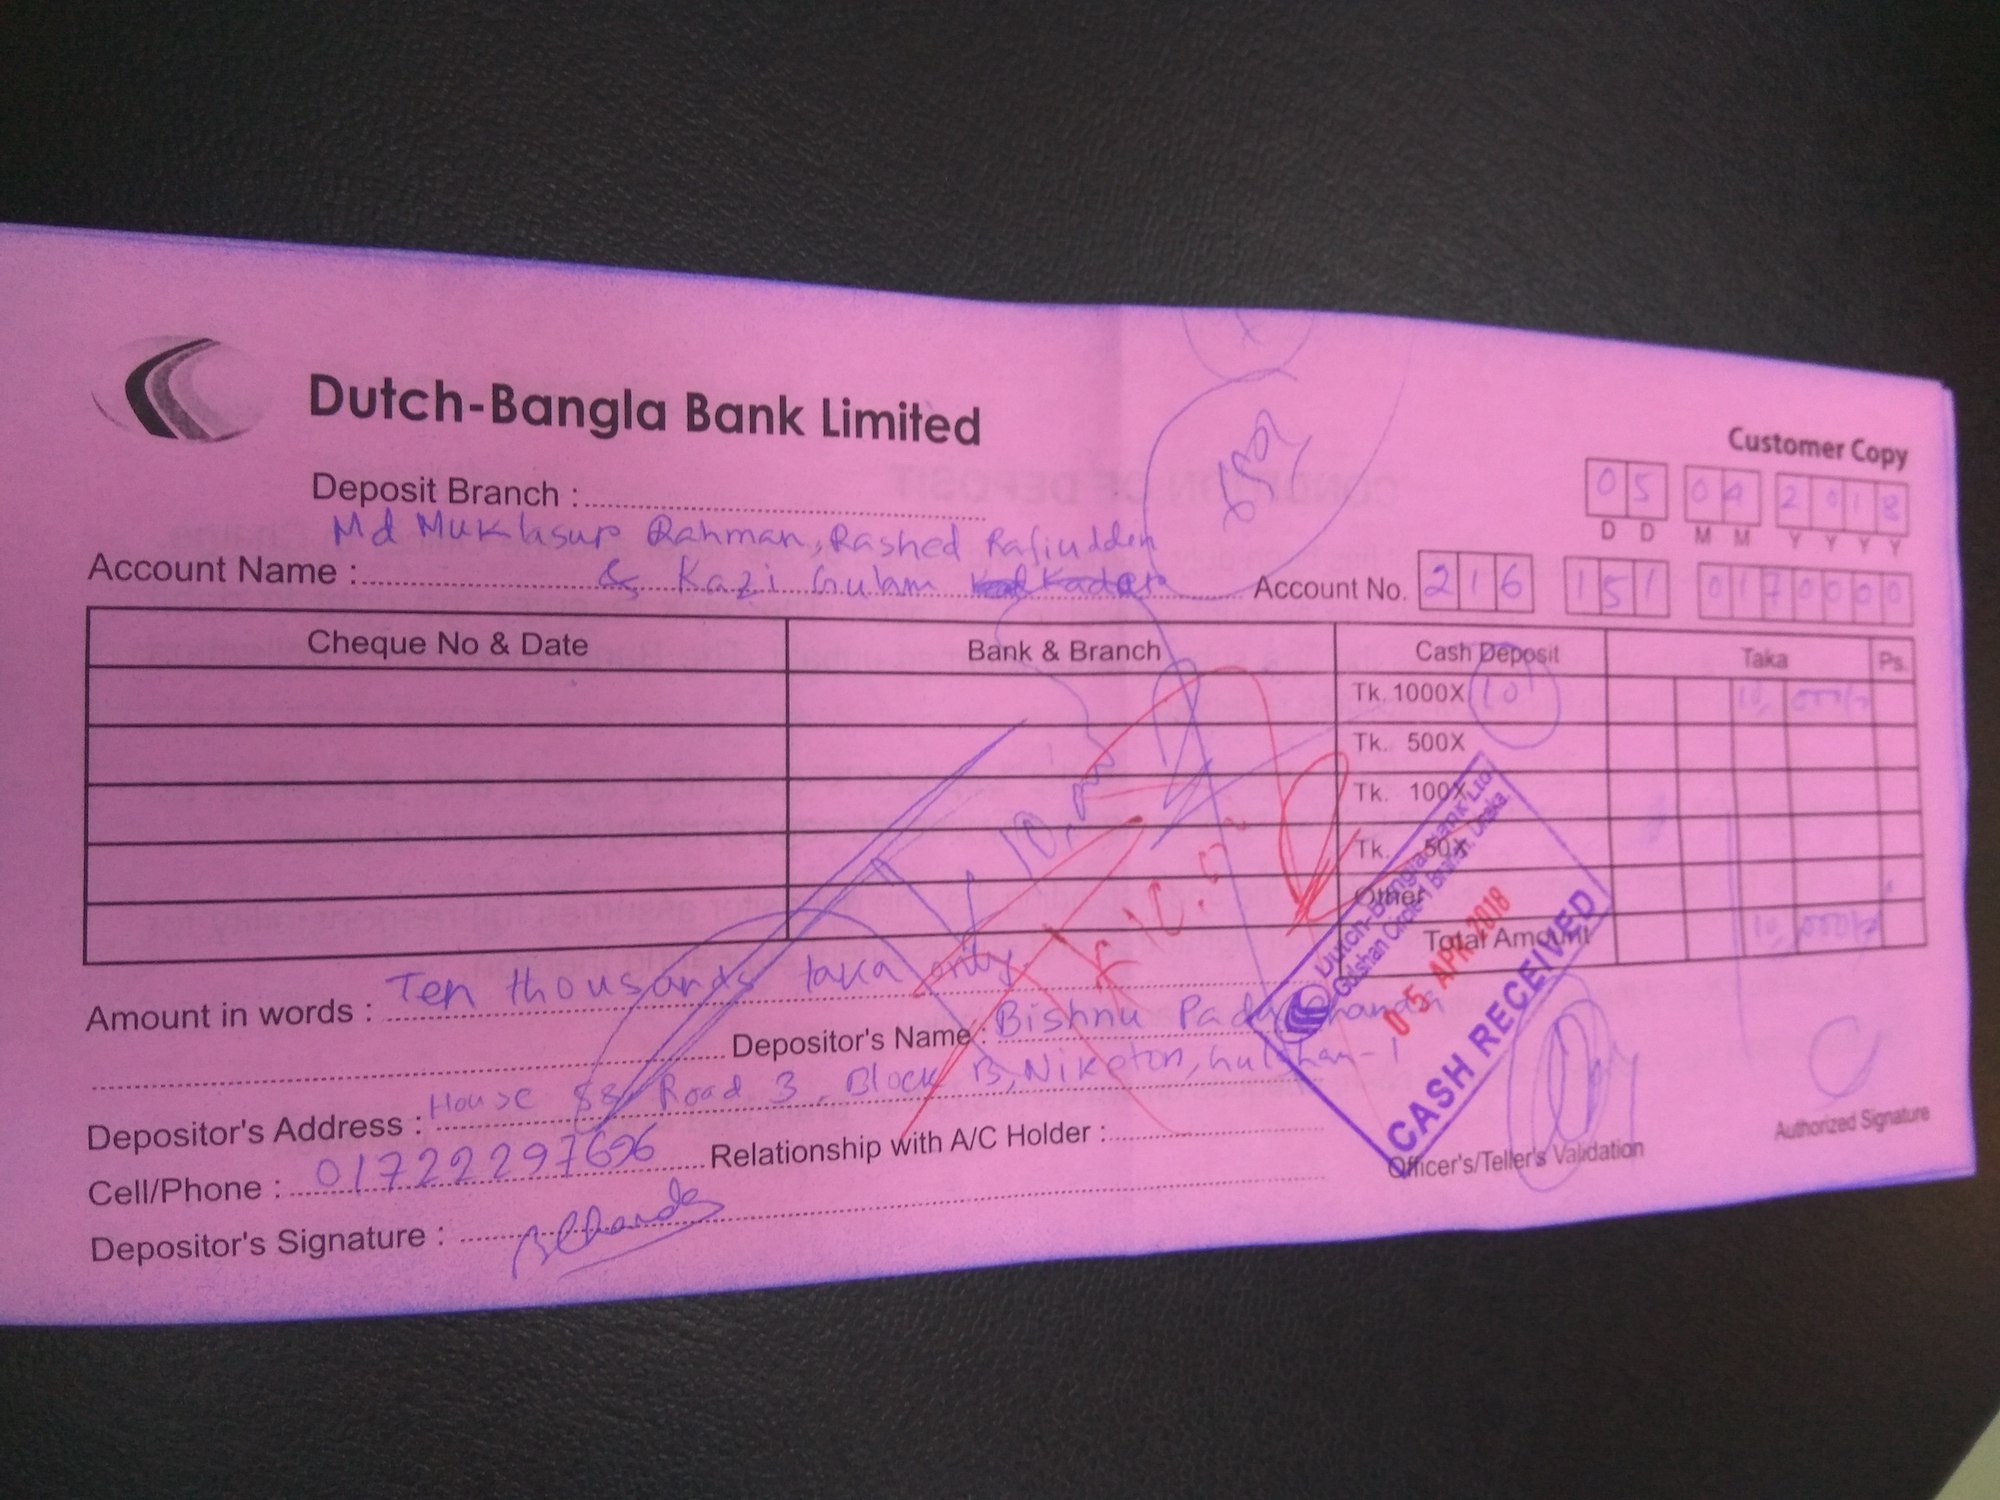 Dutch-Bangla Bank Limited
Customer Copy
Deposit Branch :
05 04 2018
D D M M Y Y Y Y
Md Muklasur Rahman, Rashed Rafiudden
Account Name : & Kazi Gulam Kader
Account No. 216 151 0170000
Cheque No & Date Bank & Branch Cash Deposit Taka Ps.
Tk. 1000X 10 10,000/=
Tk. 500X
Tk. 100X
Tk. 50X
Other
Total Amount 10,000/=
Amount in words : Ten thousands taka only.
Depositor's Name : Bishnu Pada
Depositor's Address : House 88, Road 3, Block B, Niketon, Gulshan-1
Cell/Phone : 01722297696 Relationship with A/C Holder :
Depositor's Signature :
Dutch-Bangla Bank Ltd.
Gulshan Circle-1 Branch, Dhaka.
05 APR 2018
CASH RECEIVED
Officer's/Teller's Validation
Authorized Signature